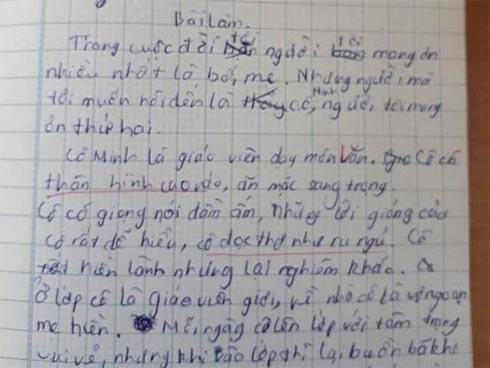 Bài làm.
Trong cuộc đời tôi người tôi mang ơn
nhiều nhất là bố, mẹ. Nhưng người mà
tôi muốn nói đến là cô Minh, người tôi mang
ơn thứ hai.
Cô Minh là giáo viên dạy môn Văn. Cô có
thân hình cao ráo, ăn mặc sang trọng.
Cô có giọng nói đầm ấm, những lời giảng của
cô rất dễ hiểu, cô đọc thơ như ru ngủ. Cô
hiền lành nhưng lại nghiêm khắc.
Ở lớp cô là giáo viên giỏi, về nhà cô là vợ ngoan
mẹ hiền. Mỗi ngày cô lên lớp với tâm trạng
vui vẻ, nhưng khi vào lớp thì lại buồn bã khi